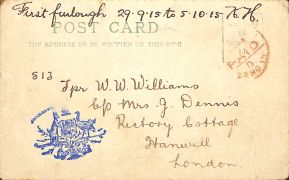 First furlough 29-9-15 to 5.10.15 H.H.
POST CARD
THE ADDRESS TO BE WRITTEN ON THIS SIDE
513
Tpr W. W. Williams
C/o Mrs. G. Dennis
Rectory Cottage
Hanwell
London
PAID